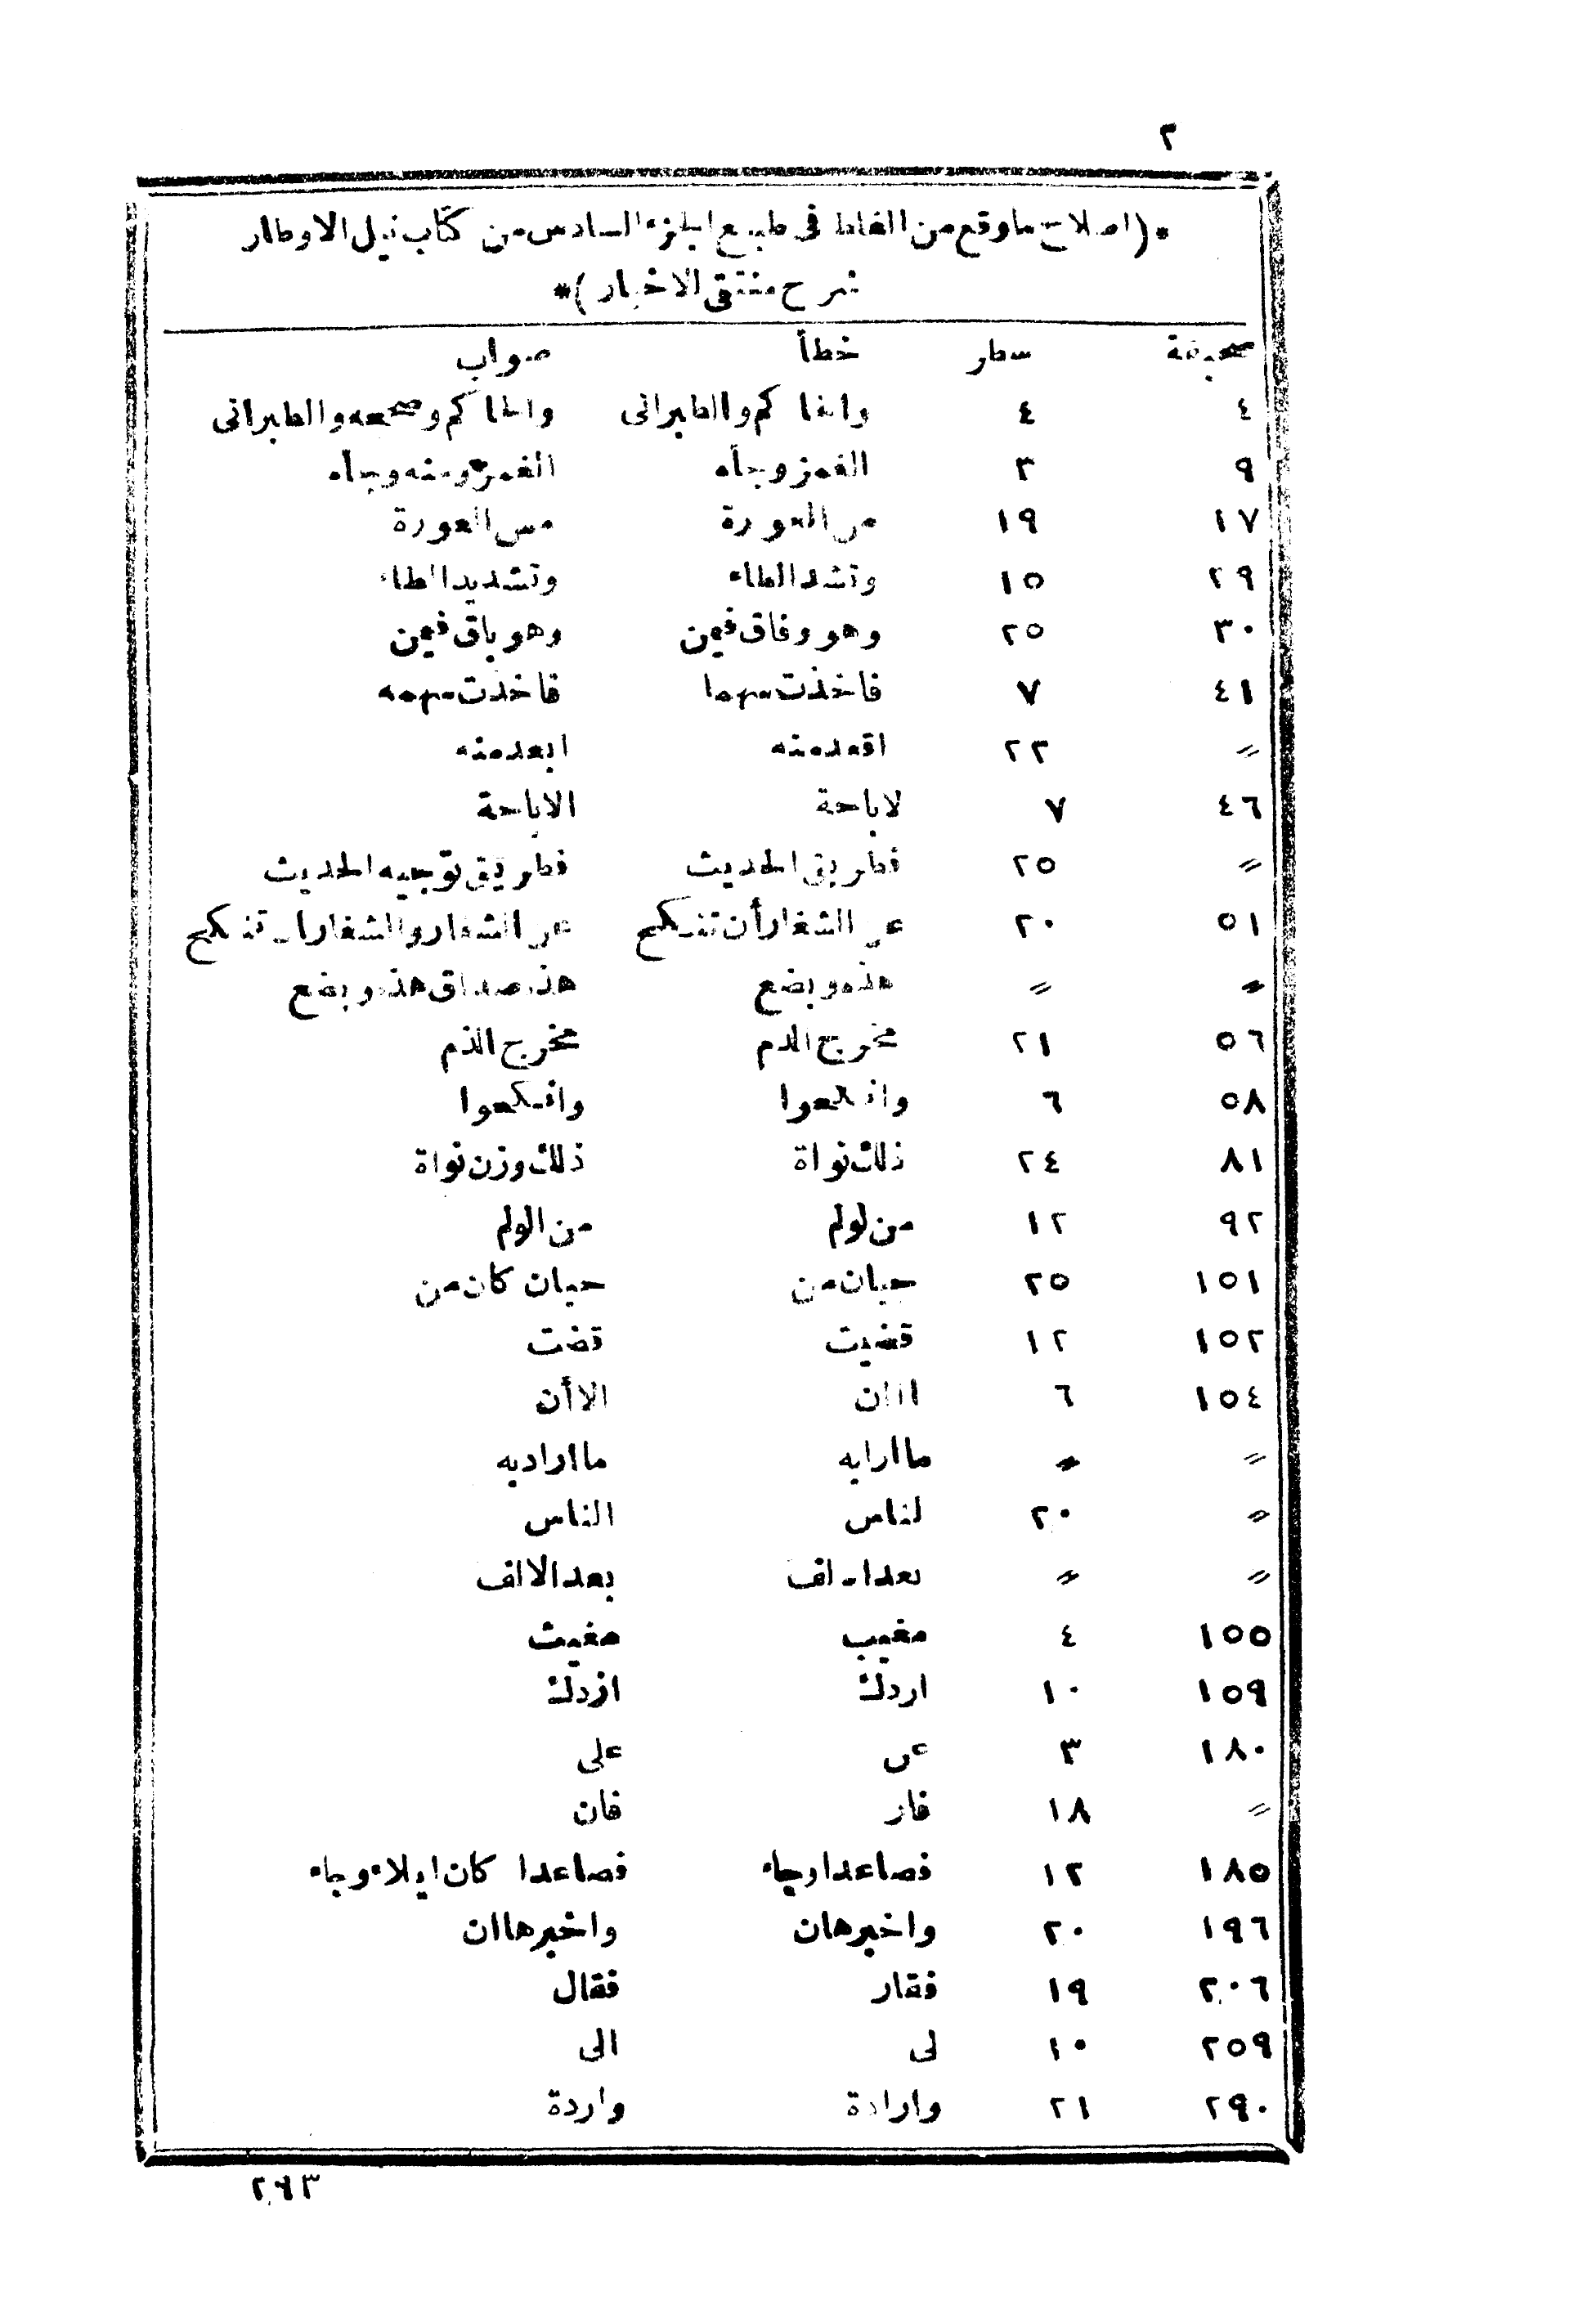 ٢
*(اصلاح ماوقع من الغلط فى طبع الجزء السادس من كتاب نيل الاوطار
شرح منتقى الاخبار)*
صحيفة سطر خطأ صواب
٤ ٤ والحاكم والطبرانى والحاكم وصححه والطبرانى
٩ ٣ الغمز وجاه الغمز ومنه وجاه
١٧ ١٩ من العورة مس العورة
٢٩ ١٥ وتشد الطاء وتشديد الطاء
٣٠ ٢٥ وهو وفاق فيمن وهو باق فيمن
٤١ ٧ فاخذت سهما فاخذت سهمه
〃 ٢٢ اقعد منه ابعد منه
٤٦ ٧ لاباحة الاباحة
〃 ٢٥ فطريق الحديث فطريق توجيه الحديث
٥١ ٢٠ عن الشغار أن تنكح عن الشغار والشغار ان تنكح
〃 〃 هذه وبضع هذه صداق هذه وبضع
٥٦ ٢١ مخرج الدم مخرج الذم
٥٨ ٦ وانكحوا وانكحوا
٨١ ٢٤ ذلك نواة ذلك وزن نواة
٩٢ ١٢ من لولم من الولم
١٥١ ٢٥ حبان من حبان كان من
١٥٢ ١٢ قضيت قضت
١٥٤ ٦ االان الاأن
〃 〃 ماارابه مااراد به
〃 ٢٠ لناس الناس
〃 〃 بعدا لف بعد الالف
١٥٥ ٤ مغيب مغيث
١٥٩ ١٠ اردك ازدك
١٨٠ ٣ عن على
〃 ١٨ فاز فان
١٨٥ ١٢ فصاعدا وجاء فصاعدا كان ايلاء وجاء
١٩٦ ٢٠ واخبرهان واخبرهاان
٢٠٦ ١٩ فقار فقال
٢٥٩ ١٠ لى الى
٢٩٠ ٢١ وارادة واردة
٢٩٣